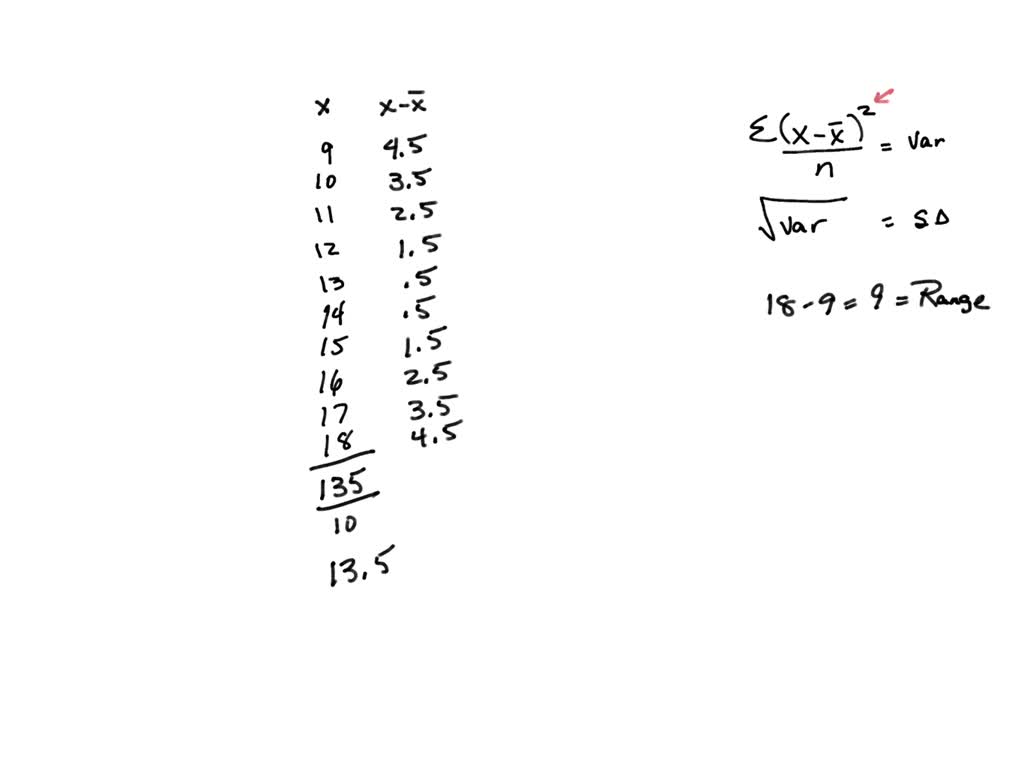 x x-x̄
9 4.5
10 3.5
11 2.5
12 1.5
13 .5
14 .5
15 1.5
16 2.5
17 3.5
18 4.5
135
10
13.5
Σ(x-x̄)²
n
= Var
√Var = SD
18-9=9=Range